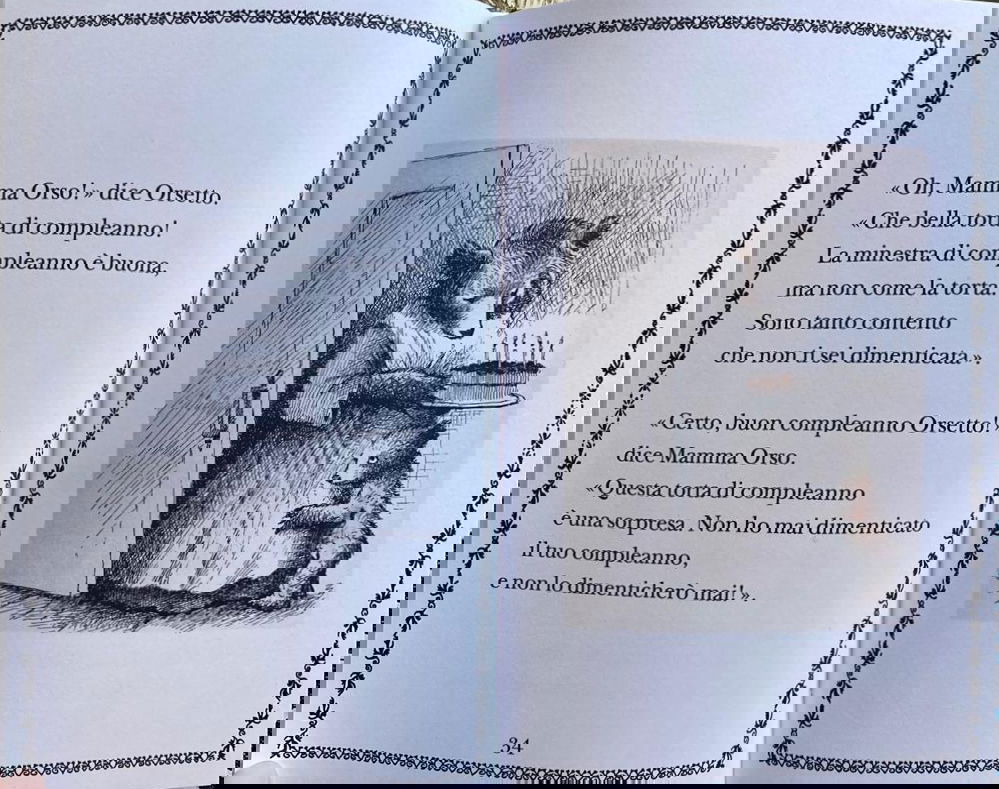 «Oh, Mamma Orso!» dice Orsetto.
«Che bella torta di compleanno!
La minestra di compleanno è buona,
ma non come la torta.
Sono tanto contento
che non ti sei dimenticata.»
«Certo, buon compleanno Orsetto!»
dice Mamma Orso.
«Questa torta di compleanno
è una sorpresa. Non ho mai dimenticato
il tuo compleanno,
e non lo dimenticherò mai!».
34